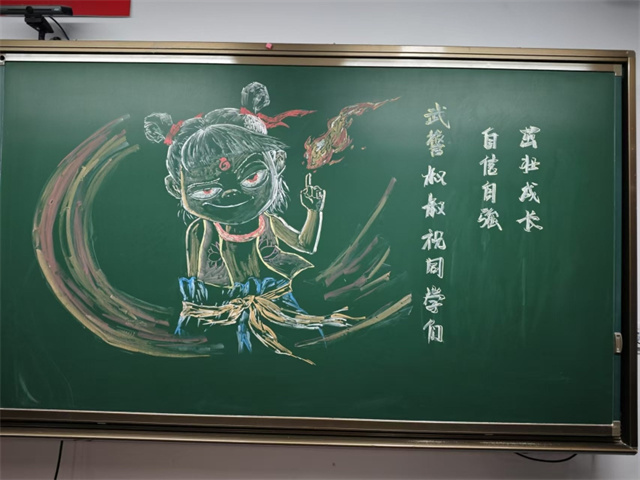 武警叔叔祝同学们
自信自强
茁壮成长